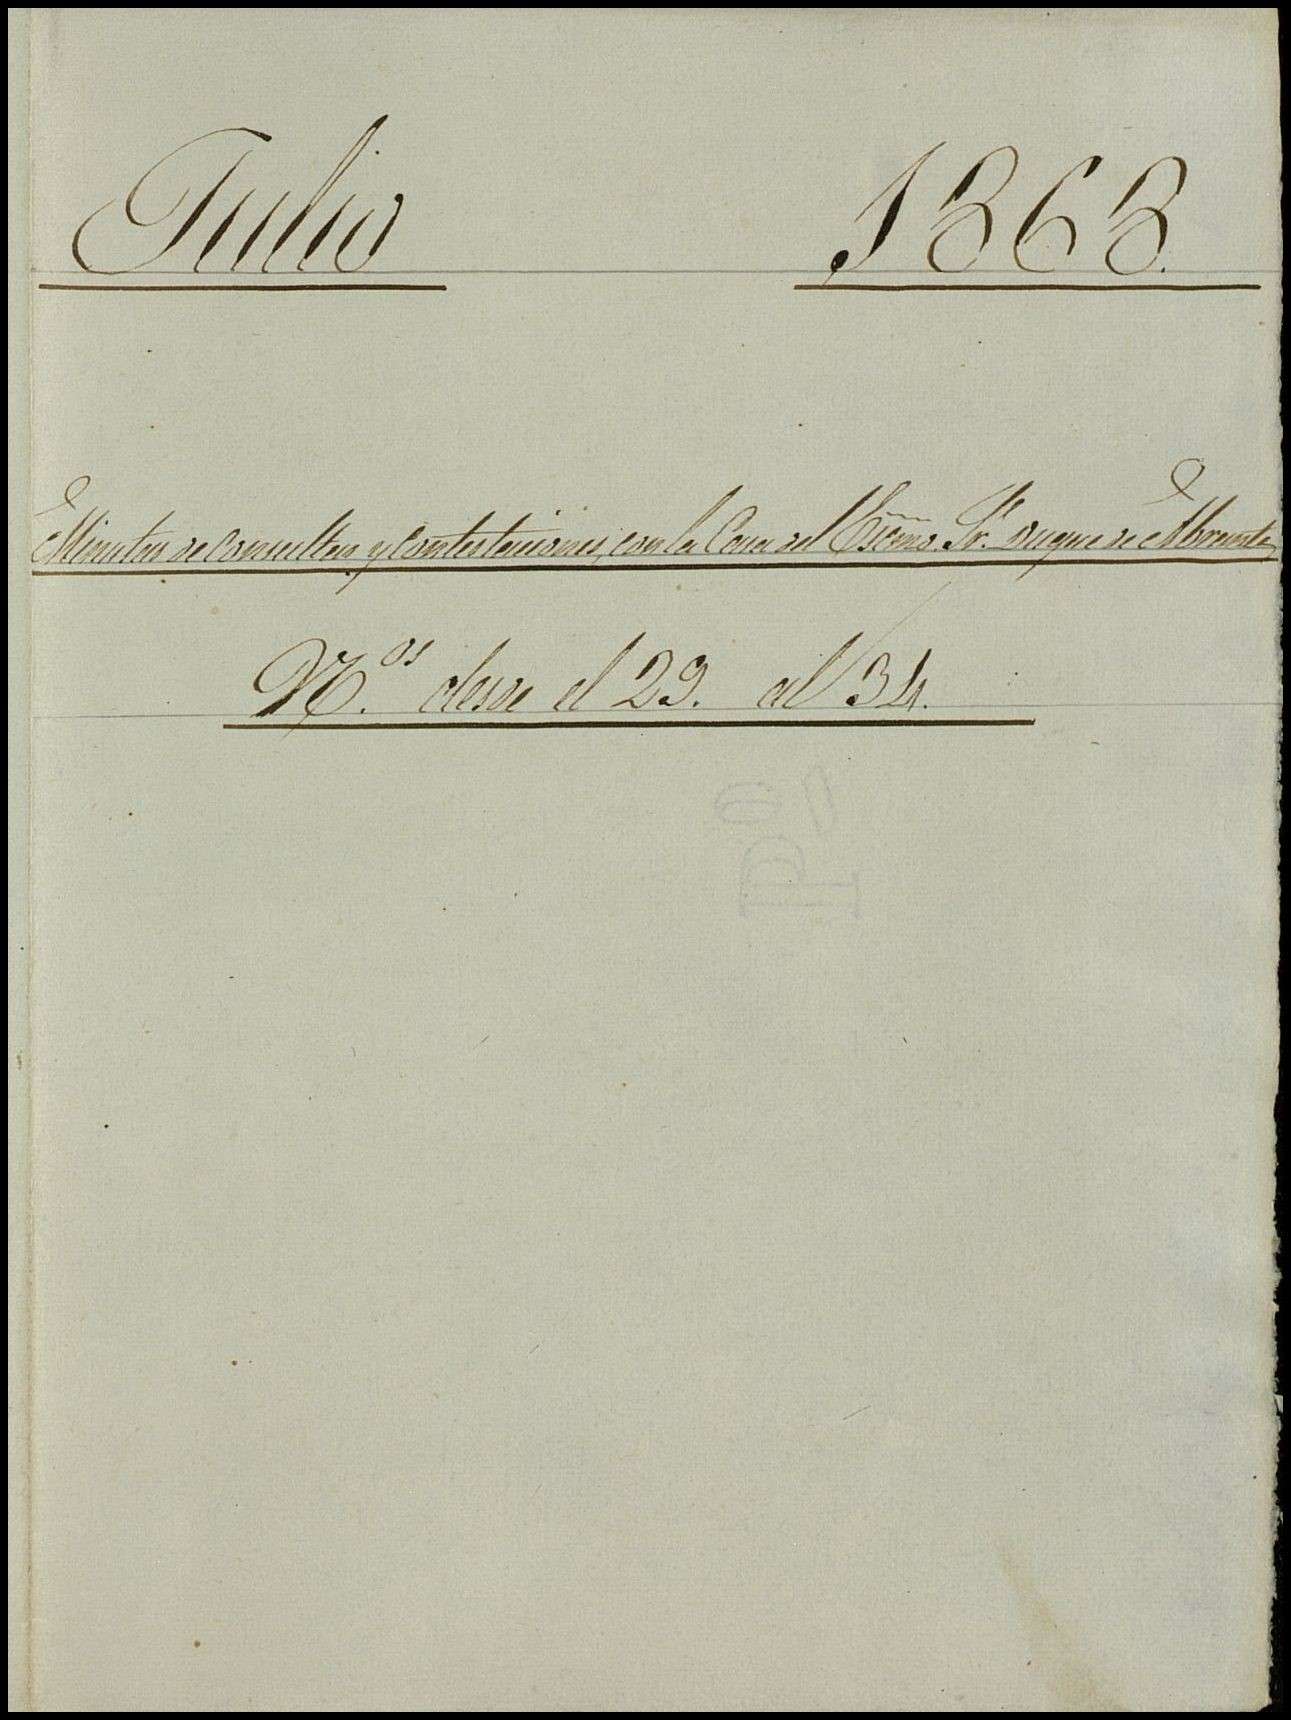 Julio 1868.
Minutas de consultas y contestaciones, con la Casa del Escmo. Sr. Duque de Abrantes
N.os desde el 29. al 34.